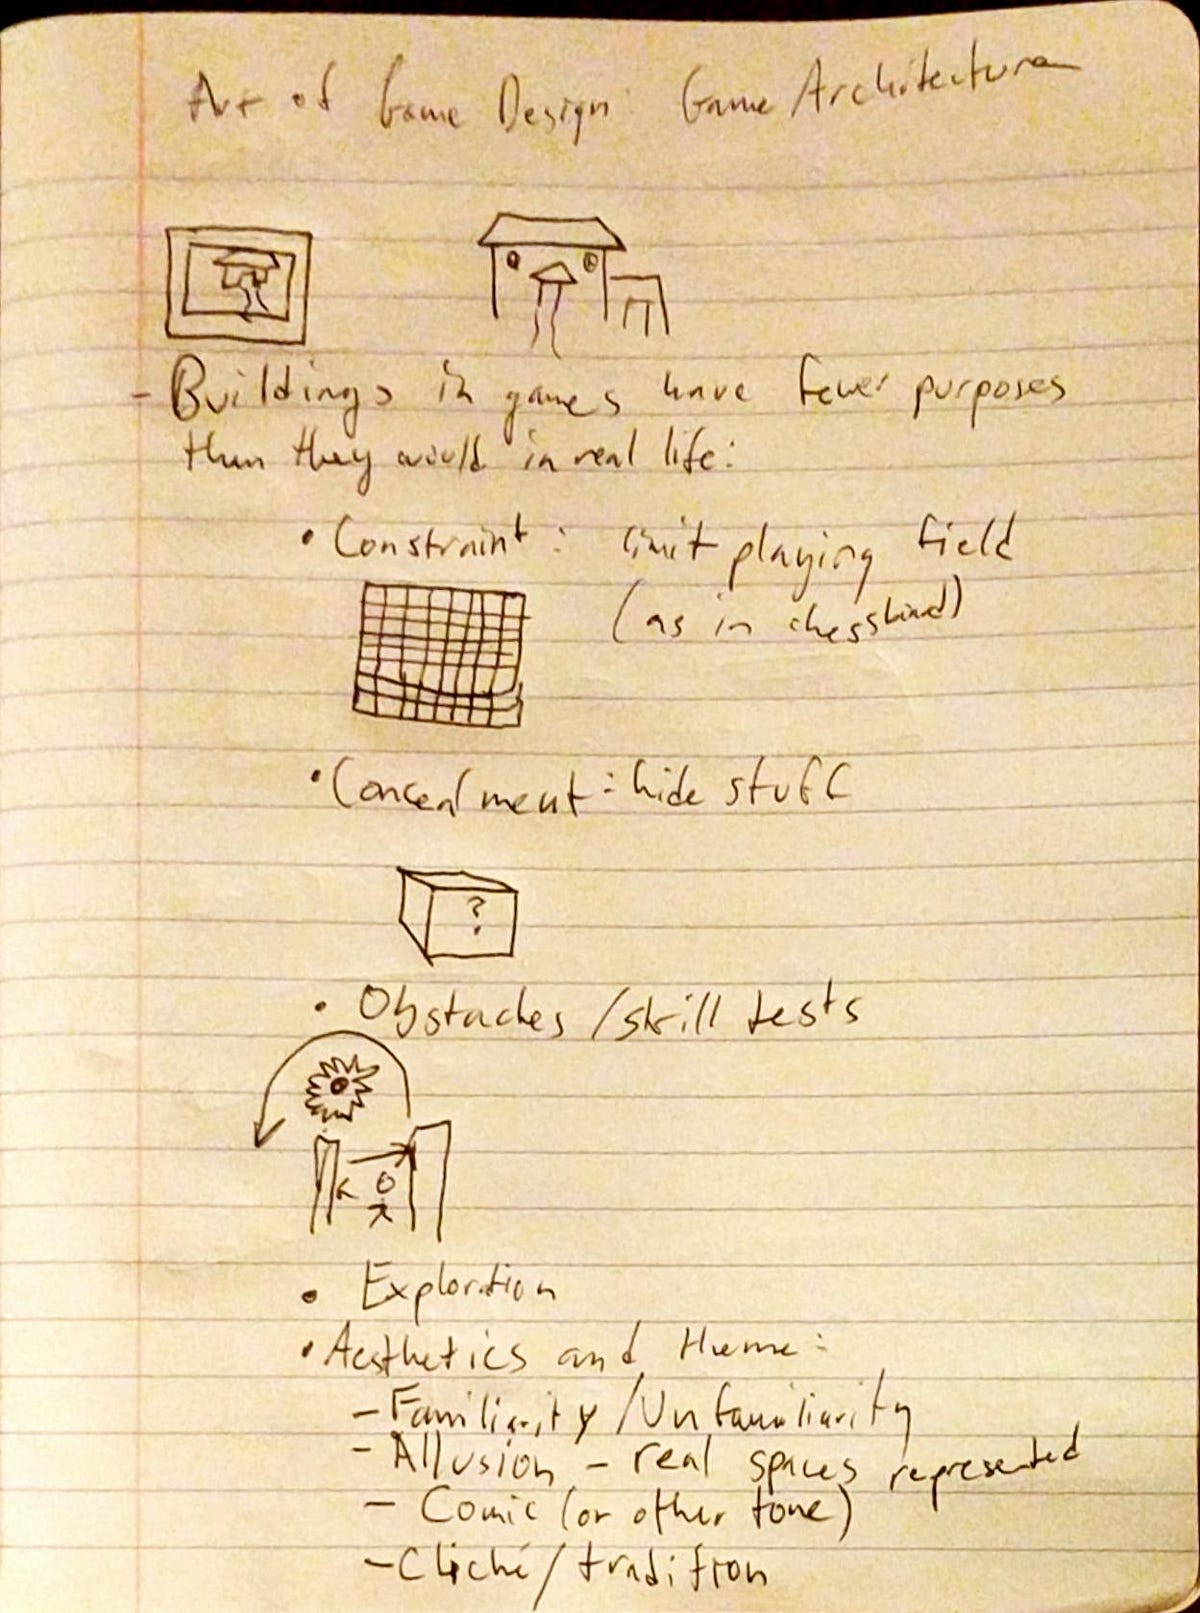 Art of Game Design: Game Architecture
- Buildings in games have fewer purposes
than they would in real life:
• Constraint: limit playing field
(as in chessboard)
• Concealment: hide stuff
?
• Obstacles/skill tests
• Exploration
• Aesthetics and theme:
- Familiarity/Unfamiliarity
- Allusion - real spaces represented
- Comic (or other tone)
- Cliché/tradition